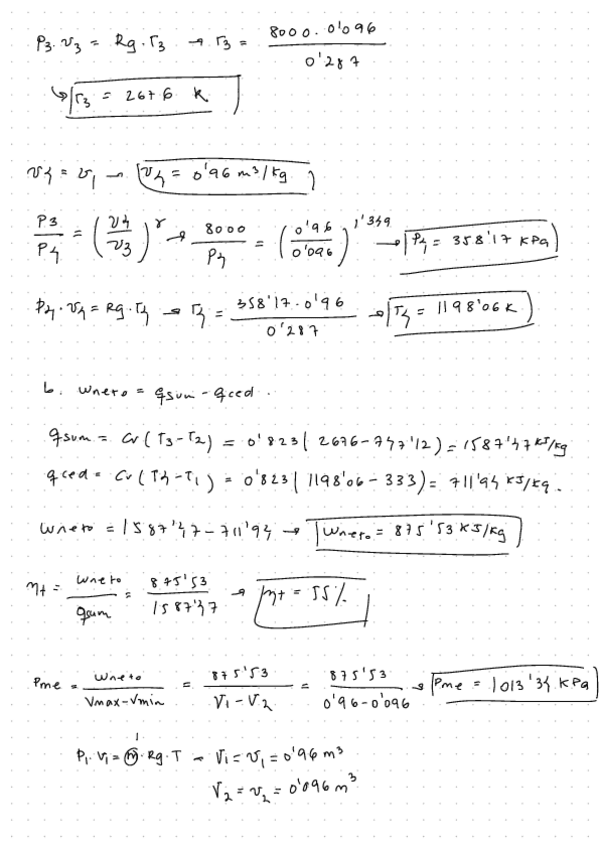 P3·v3 = Rg·T3 → T3 = 8000·0'096 / 0'287
↳ T3 = 2676 K
v4 = v1 → v4 = 0'96 m³/kg
P3/P4 = (v4/v3)^γ → 8000/P4 = (0'96/0'096)^1'349 → P4 = 358'17 KPa
P4·v4 = Rg·T4 → T4 = 358'17·0'96 / 0'287 → T4 = 1198'06 K
b. Wneto = qsum - qced.
qsum = Cv(T3-T2) = 0'823(2676-747'12) = 1587'47 KJ/kg
qced = Cv(T4-T1) = 0'823(1198'06-333) = 711'94 KJ/kg.
Wneto = 1587'47-711'94 → Wneto = 875'53 KJ/kg
ηt = Wneto/qsum = 875'53/1587'47 → ηt = 55%
Pme = Wneto/(Vmax-Vmin) = 875'53/(V1-V2) = 875'53/(0'96-0'096) → Pme = 1013'34 KPa
1
P1·V1 = m·Rg·T → V1 = v1 = 0'96 m³
V2 = v2 = 0'096 m³